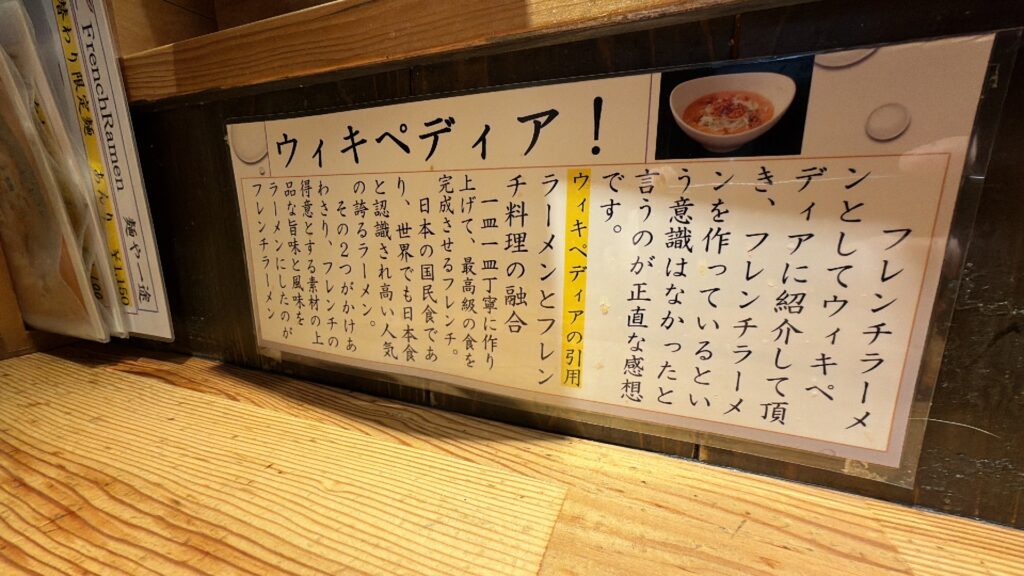 ウィキペディア！
フレンチラーメ
ンとしてウィキペ
ディアに紹介して頂
き、フレンチラーメ
ンを作っているとい
う意識はなかったと
言うのが正直な感想
です。
ウィキペディアの引用
ラーメンとフレン
チ料理の融合
一皿一皿丁寧に作り
上げて、最高級の食を
完成させるフレンチ。
日本の国民食であ
り、世界でも日本食
と認識され高い人気
の誇るラーメン。
その２つがかけあ
わさり、フレンチの
得意とする素材の上
品な旨味と風味を
ラーメンにしたのが
フレンチラーメン
FrenchRamen
麺や一途
替わり限定麺
あんり
￥1150